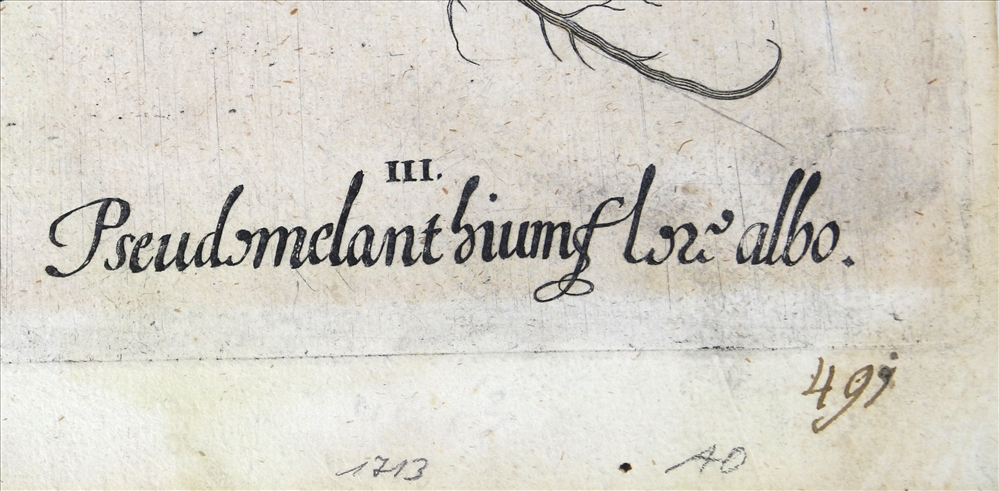 III.
Pseudomelanthium flore albo.
491
1713 AO